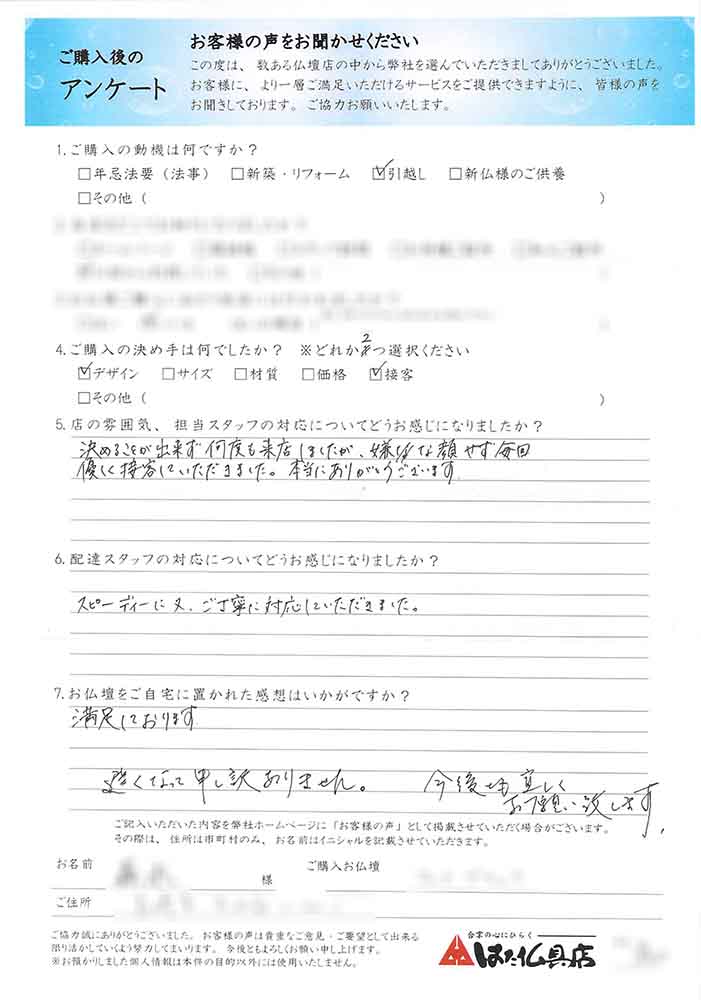 ご購入後の
アンケート
お客様の声をお聞かせください
この度は、数ある仏壇店の中から弊社を選んでいただきましてありがとうございました。
お客様に、より一層ご満足いただけるサービスをご提供できますように、皆様の声を
お聞きしております。ご協力お願いいたします。
1.ご購入の動機は何ですか？
□年忌法要（法事） □新築・リフォーム ☑引越し □新仏様のご供養
□その他（ ）
4.ご購入の決め手は何でしたか？ ※どれか2つ選択ください
☑デザイン □サイズ □材質 □価格 ☑接客
□その他（ ）
5.店の雰囲気、担当スタッフの対応についてどうお感じになりましたか？
決めることが出来ず何度も来店しましたが、嫌な顔せず毎回
優しく接客していただきました。本当にありがとうございます
6.配達スタッフの対応についてどうお感じになりましたか？
スピーディーに又、ご丁寧に対応していただきました。
7.お仏壇をご自宅に置かれた感想はいかがですか？
満足しております
遅くなって申し訳ありません。 今後とも宜しく
お願い致します。
ご記入いただいた内容を弊社ホームページに「お客様の声」として掲載させていただく場合がございます。
その際は、住所は市町村のみ、お名前はイニシャルを記載させていただきます。
お名前 様 ご購入お仏壇
ご住所
ご協力誠にありがとうございました。お客様の声は貴重なご意見・ご要望として出来る
限り活かしていくよう努力してまいります。今後ともよろしくお願い申し上げます。
※お預かりしました個人情報は本件の目的以外には使用いたしません。
合掌の心にひらく
はた仏具店